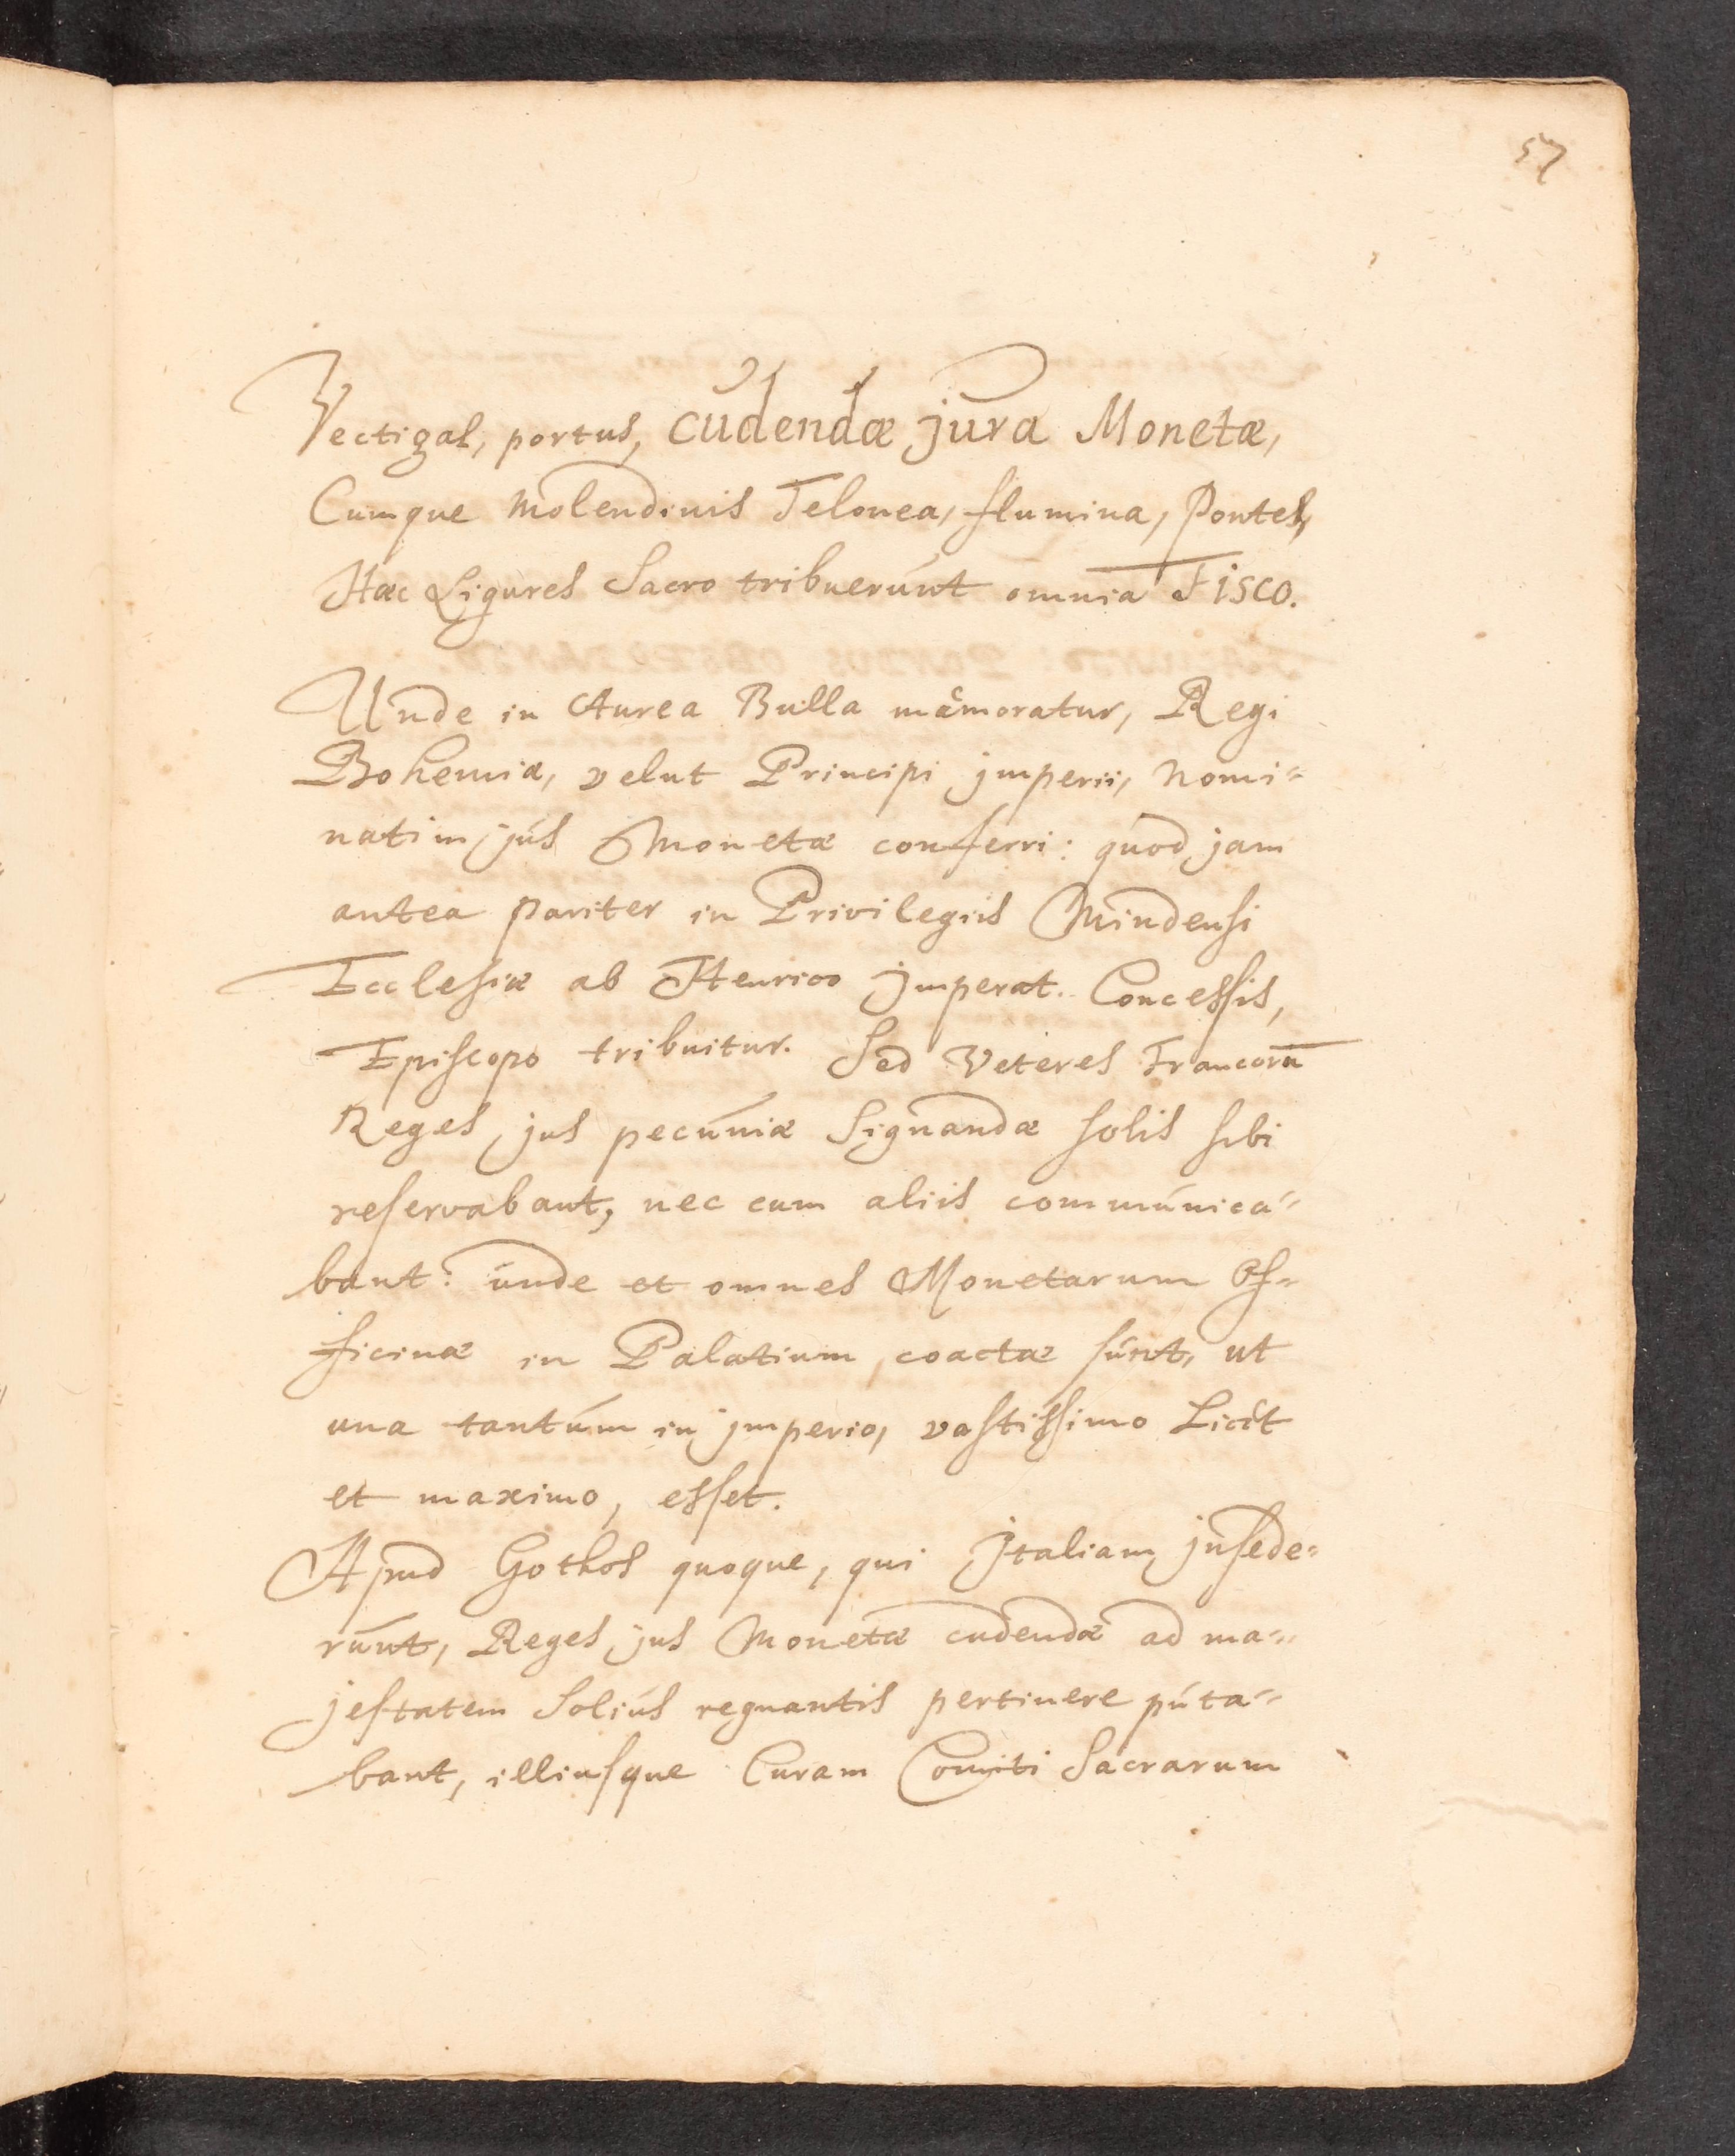 57
Vectigal, portus, cudendæ jura Monetæ,
Cumque Molendinis Telonea, flumina, Pontes,
Hæc Ligures Sacro tribuerunt omnia Fisco.
Unde in Aurea Bulla mem̃oratur, Regi
Bohemiæ, velut Principi jmperii, nomi=
natim jus Monetæ conferri: quod jam
antea pariter in Privilegiis Mindensi
Ecclesiæ ab Henrico jmperat. Concessis,
Episcopo tribuitur. Sed Veteres Francorū
Reges, jus pecuniæ Signandæ solis sibi
reservabant, nec cum aliis communica=
bant: unde et omnes Monetarum Of=
ficinæ in Palatium coactæ sunt, ut
una tantum in jmperio, vastissimo Licèt
et maximo, esset.
Apud Gothos quoque, qui Jtaliam jnsede=
runt, Reges jus Monetæ cudendæ ad ma=
jestatem Solius regnantis pertinere puta=
bant, illiusque Curam Comiti Sacrarum